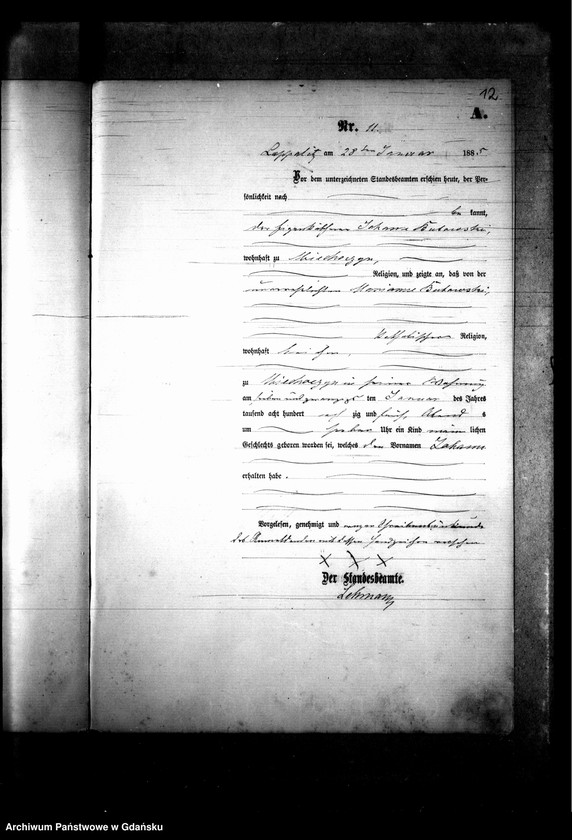 12
A.
Nr. 11.
am 28ten Januar 1885
Vor dem unterzeichneten Standesbeamten erschien heute, der Per-
sönlichkeit nach
be kannt,
der Eigenkäthner Johann Kutowski,
wohnhaft zu
Religion, und zeigte an, daß von der
unverehelichten Marianne Kutowski,
katholischer Religion,
wohnhaft bei ihm,
zu in seiner Wohnung
am sieben und zwanzigsten Januar des Jahres
tausend acht hundert acht zig und fünf, Abends
um sieben Uhr ein Kind männ lichen
Geschlechts geboren worden sei, welches den Vornamen Johann
erhalten habe.
Vorgelesen, genehmigt und wegen Schreibensunkunde
des Anmeldenden mit dessen Handzeichen versehen
X X X
Der Standesbeamte.
Lehmann
Archiwum Państwowe w Gdańsku